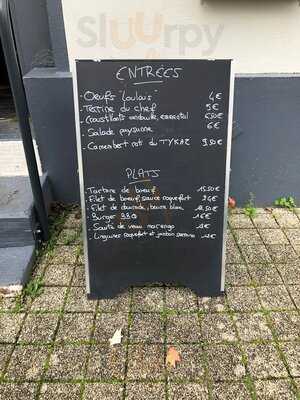 Slurpy
ENTRÉES
- Oeufs "Loulou's 4€
- Terrine du chef 5€
- Croustillant andouille, emmental 6,50€
- Salade paysanne 6€
- Camembert roti du TYKAZ 9.50€
PLATS
- Tartare de boeuf 15.50€
- Filet de boeuf, sauce roquefort 24€
- Filet de daurade, beurre blanc
- Burger BBQ 16€
- Sauté de veau marengo
- Linguines roquefort et jambon